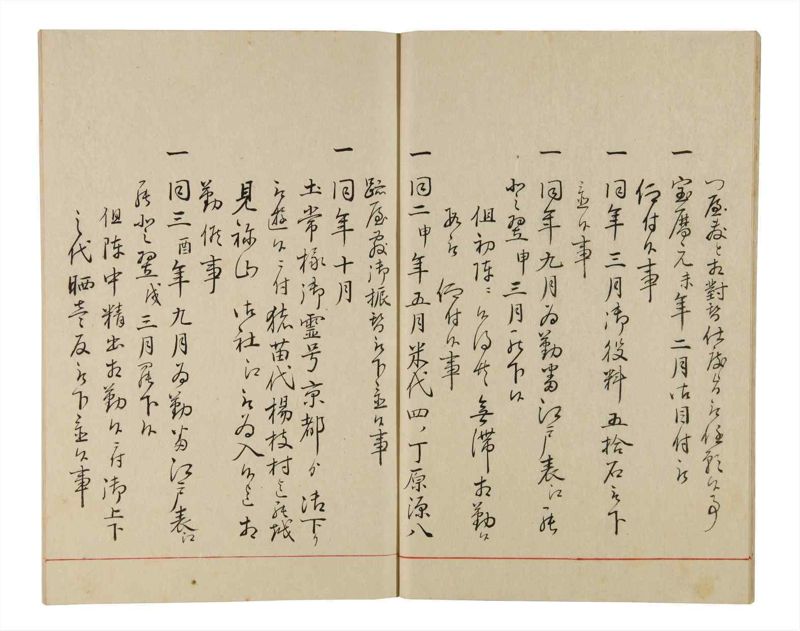 一宝暦元未年二月御目付被
仰付候事
一同年三月御役料五拾石被下
置候事
一同年九月為勤番江戸表江罷
登翌申三月罷下候
但初陣ニ候得共無滞相勤候
段被 仰付候事
一同二申年五月米代四ノ丁原源八
跡屋敷御振替被下置候事
一同年十月
土常様御霊号京都ゟ御下り
被遊候ニ付猪苗代楊枝村迄罷越
見祢山 御社江被為入候迄相
勤候事
一同三酉年九月為勤番江戸表江
罷登翌戌三月罷下候
但陣中精出相勤候ニ付御上下
之代晒壱反被下置候事